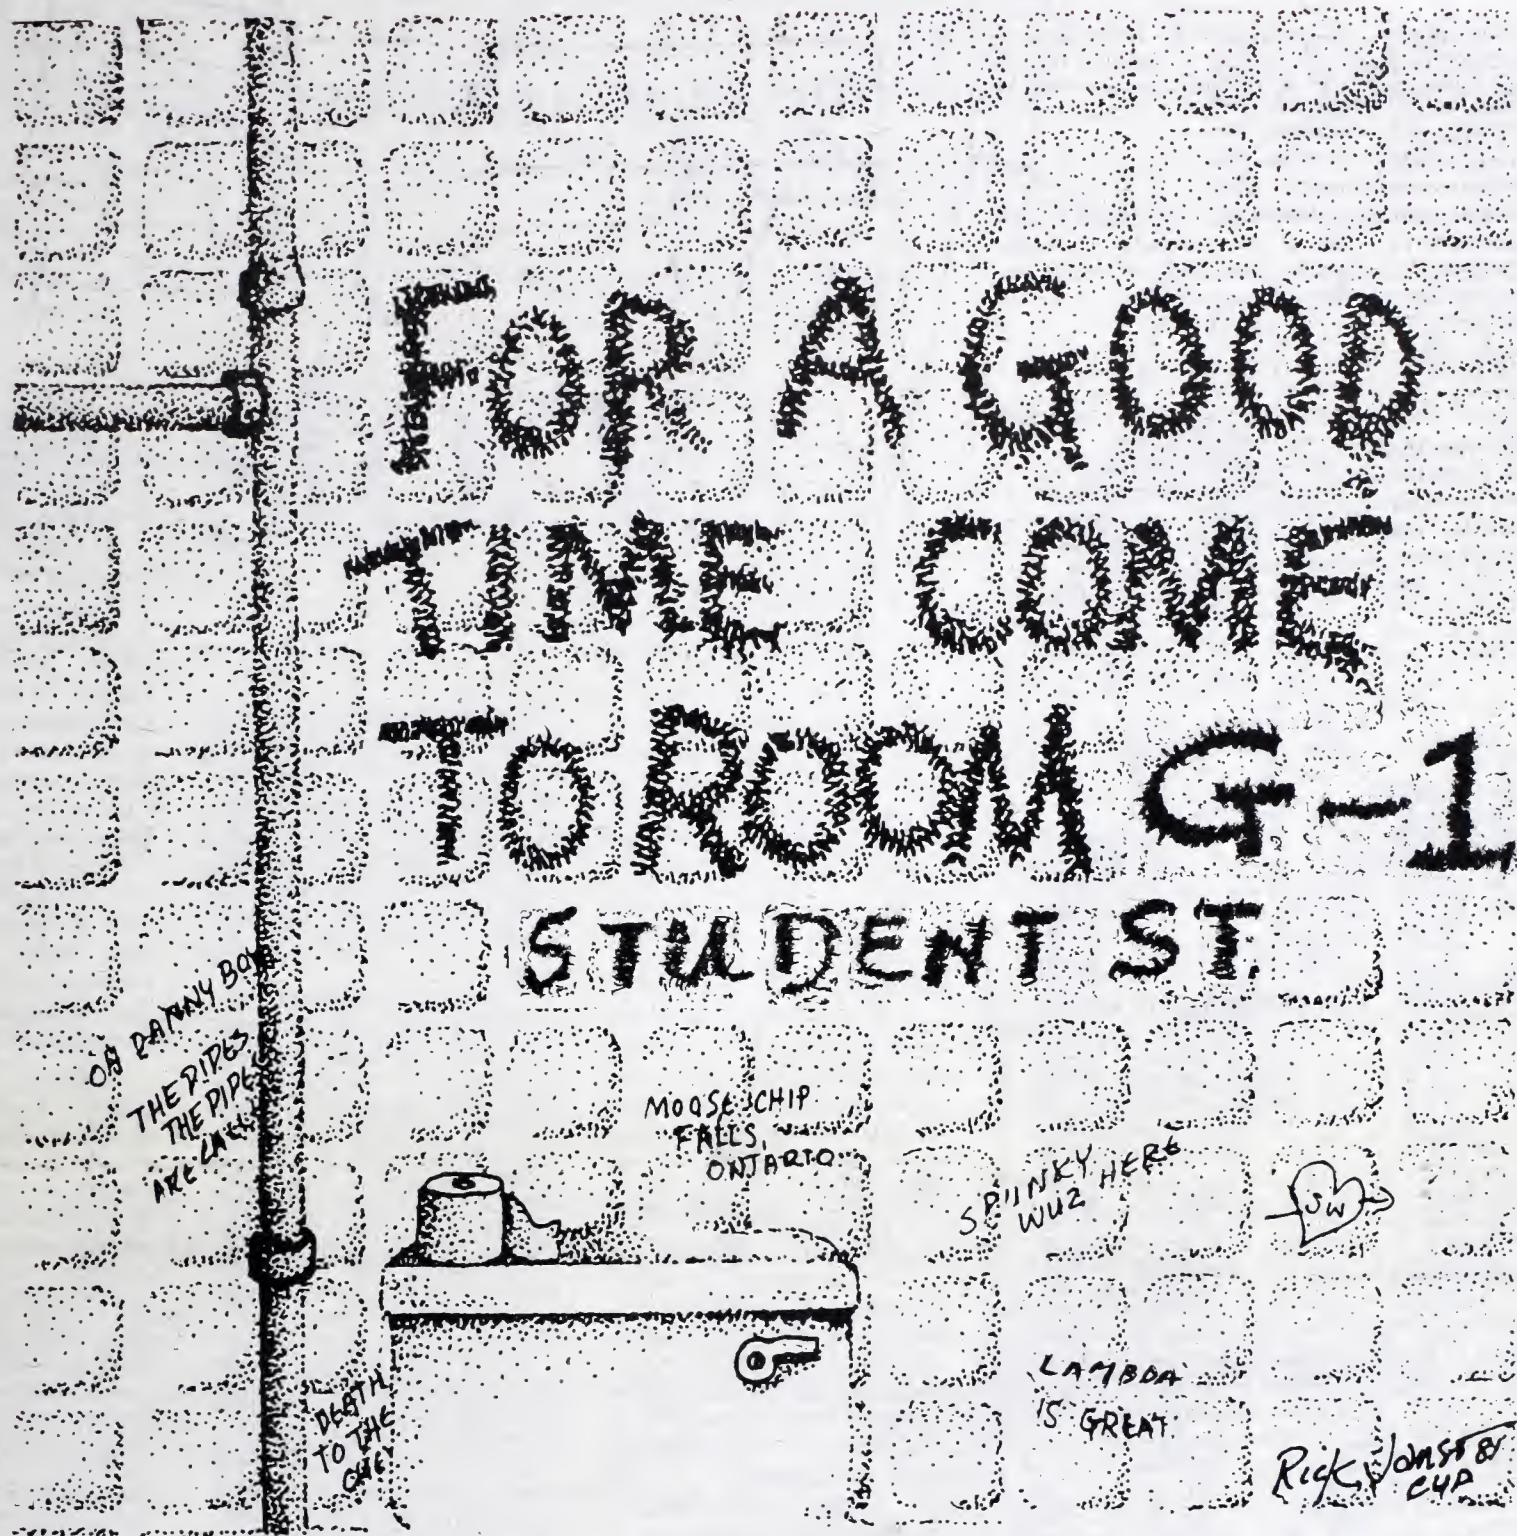 FOR A GOOD
TIME COME
TO ROOM G-1
STUDENT ST.
OH DANNY BOY
THE PIPES
THE PIPES
ARE CALL
MOOSE CHIP
FALLS,
ONTARIO
SPUNKY
WUZ HERE
LAMBDA
IS GREAT
DEATH
TO THE
Rick
CUP